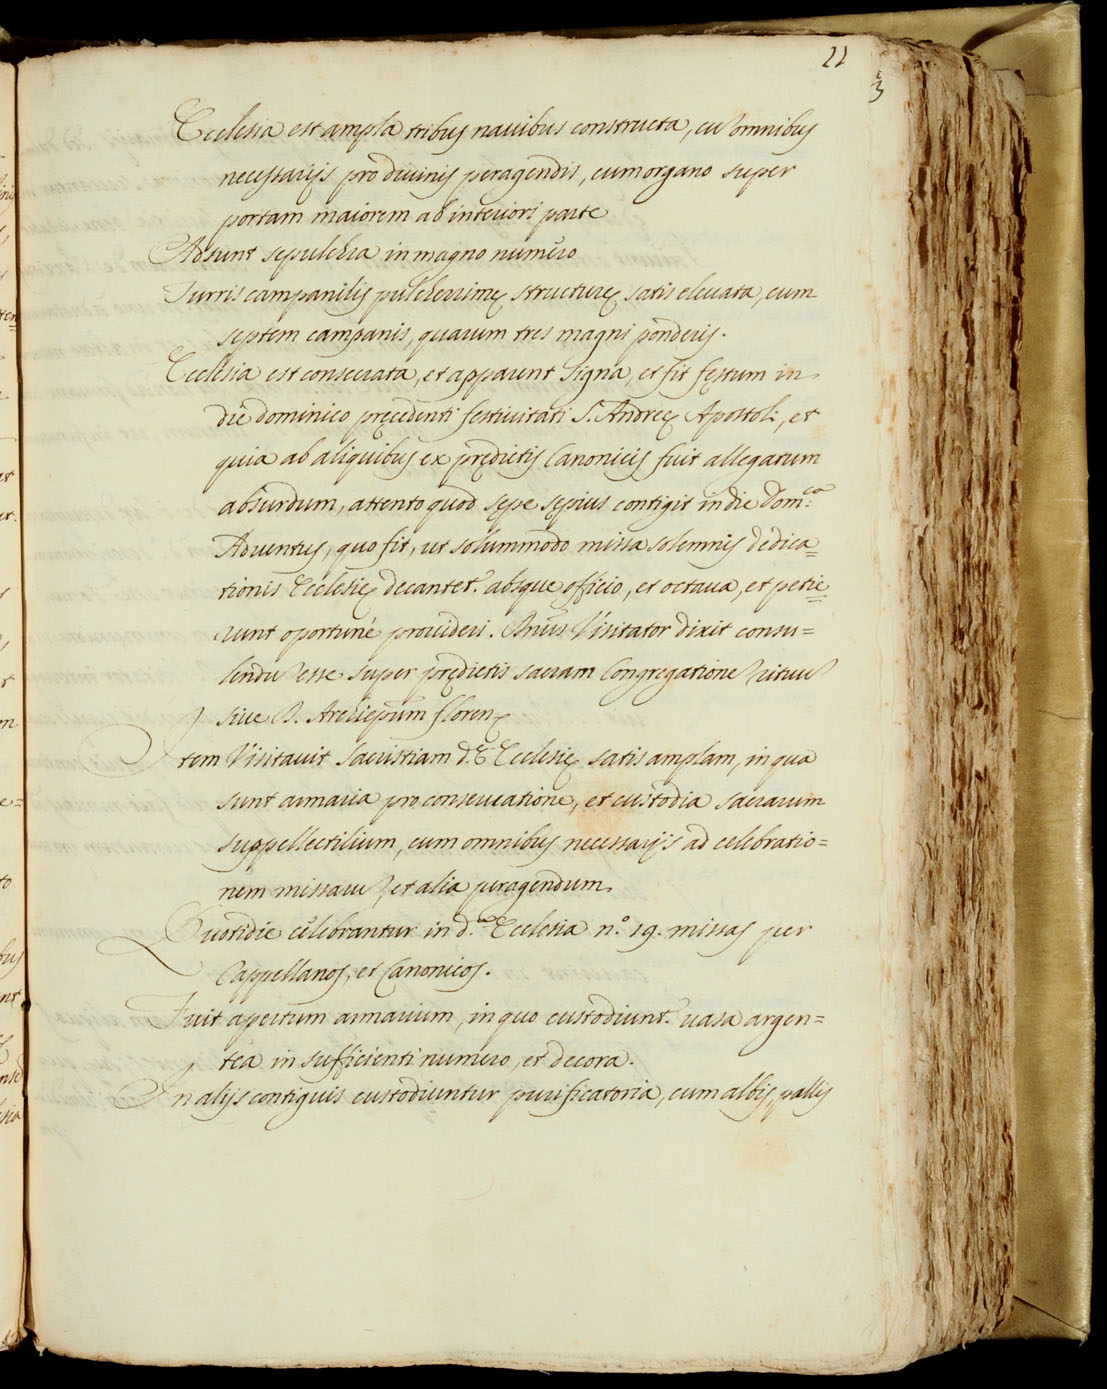 22
3
Ecclesia est ampla tribus nauibus constructa, cũ omnibus
necessarijs pro diuinis peragendis, cum organo super
portam maiorem ab interiori parte
Adsunt sepulchra in magno numero
Turris campanilis pulcherrimę structurę satis eleuata, cum
septem campanis, quarum tres magni ponderis.
Ecclesia est consecrata, et apparent signa, et fit festum in
die dominico pręcedenti festiuitati S. Andreę Apostoli, et
quia ab aliquibus ex prędictis Canonicis fuit allegatum
absurdum, attento quod sępe sępius contigit in die Dom:ca
Aduentus, quo fit, ut solummodo missa solemnis dedica=
tionis Ecclesię decantet.r absque officio, et octaua, et petie=
runt oportunè prouideri. Illmus Visitator dixit consu=
lendũ esse super prędictis sacram Congregationẽ rituũ
siue D. Archiepũm floren.
Item Visitauit Sacristiam d.ę Ecclesię satis amplam, in qua
sunt armaria pro conseruatione, et custodia sacrarum
suppellectilium, cum omnibus necessarijs ad celebratio=
nem missarũ, et alia peragendum.
Quotidie celebrantur in d.a Ecclesia n.o 19. missas per
Cappellanos, et Canonicos.
Fuit apertum armarium, in quo custodiunt.r uasa argen=
tea in sufficienti numero, et decora.
In alijs contiguis custodiuntur purificatoria, cum albis, pallis